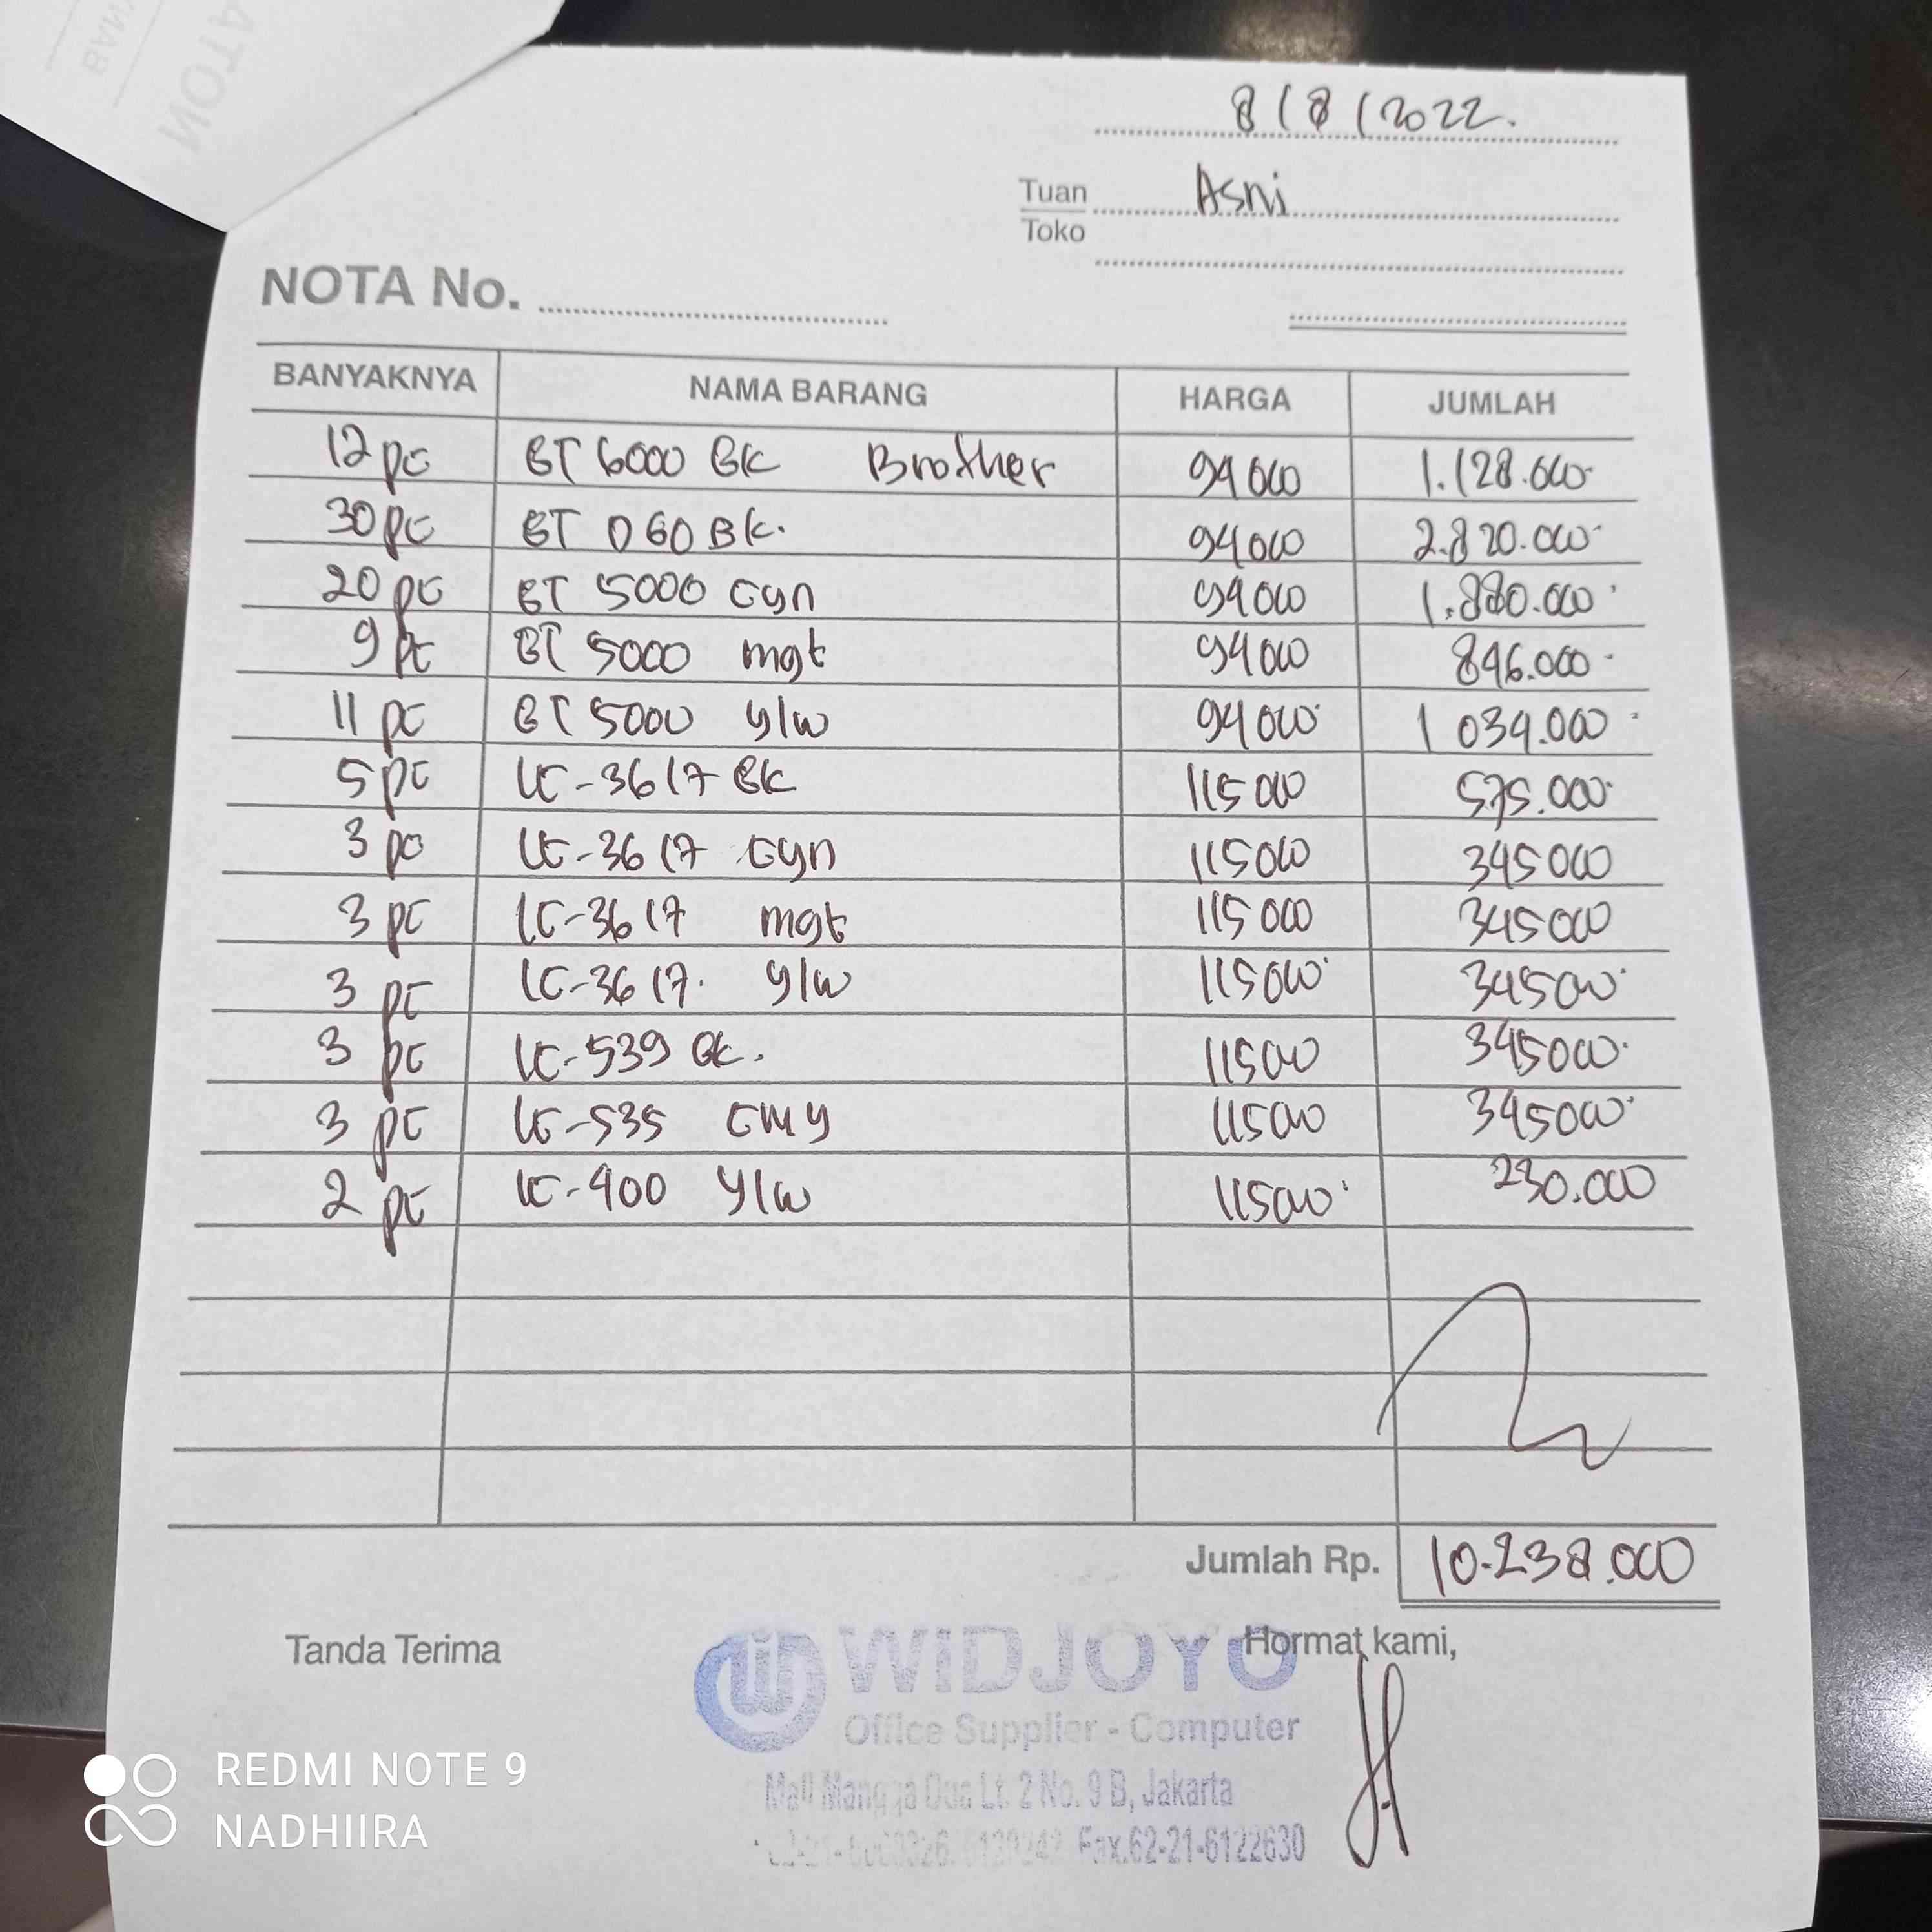 8/8/2022.
Tuan Asni
Toko
NOTA No.
BANYAKNYA NAMA BARANG HARGA JUMLAH
12 pc BT 6000 BK Brother 94000 1.128.000
30 pc BT D60 BK. 94000 2.820.000
20 pc BT 5000 Cyn 94000 1.880.000
9 pc BT 5000 mgt 94000 846.000
11 pc BT 5000 ylw 94000 1 034.000
5 pc LC-3617 BK 115000 575.000
3 pc LC-3617 Cyn 115000 345000
3 pc LC-3617 mgt 115000 345000
3 pc LC-3617. ylw 115000 345000
3 pc LC-539 BK. 115000 345000
3 pc LC-535 CMY 115000 345000
2 pc LC-400 Ylw 115000 230.000
Jumlah Rp. 10.238.000
Tanda Terima Hormat kami,
WIDJOYO
Office Supplier - Computer
Mall Mangga Dua Lt. 2 No. 9 B, Jakarta
Fax.62-21-6122630
REDMI NOTE 9
NADHIIRA